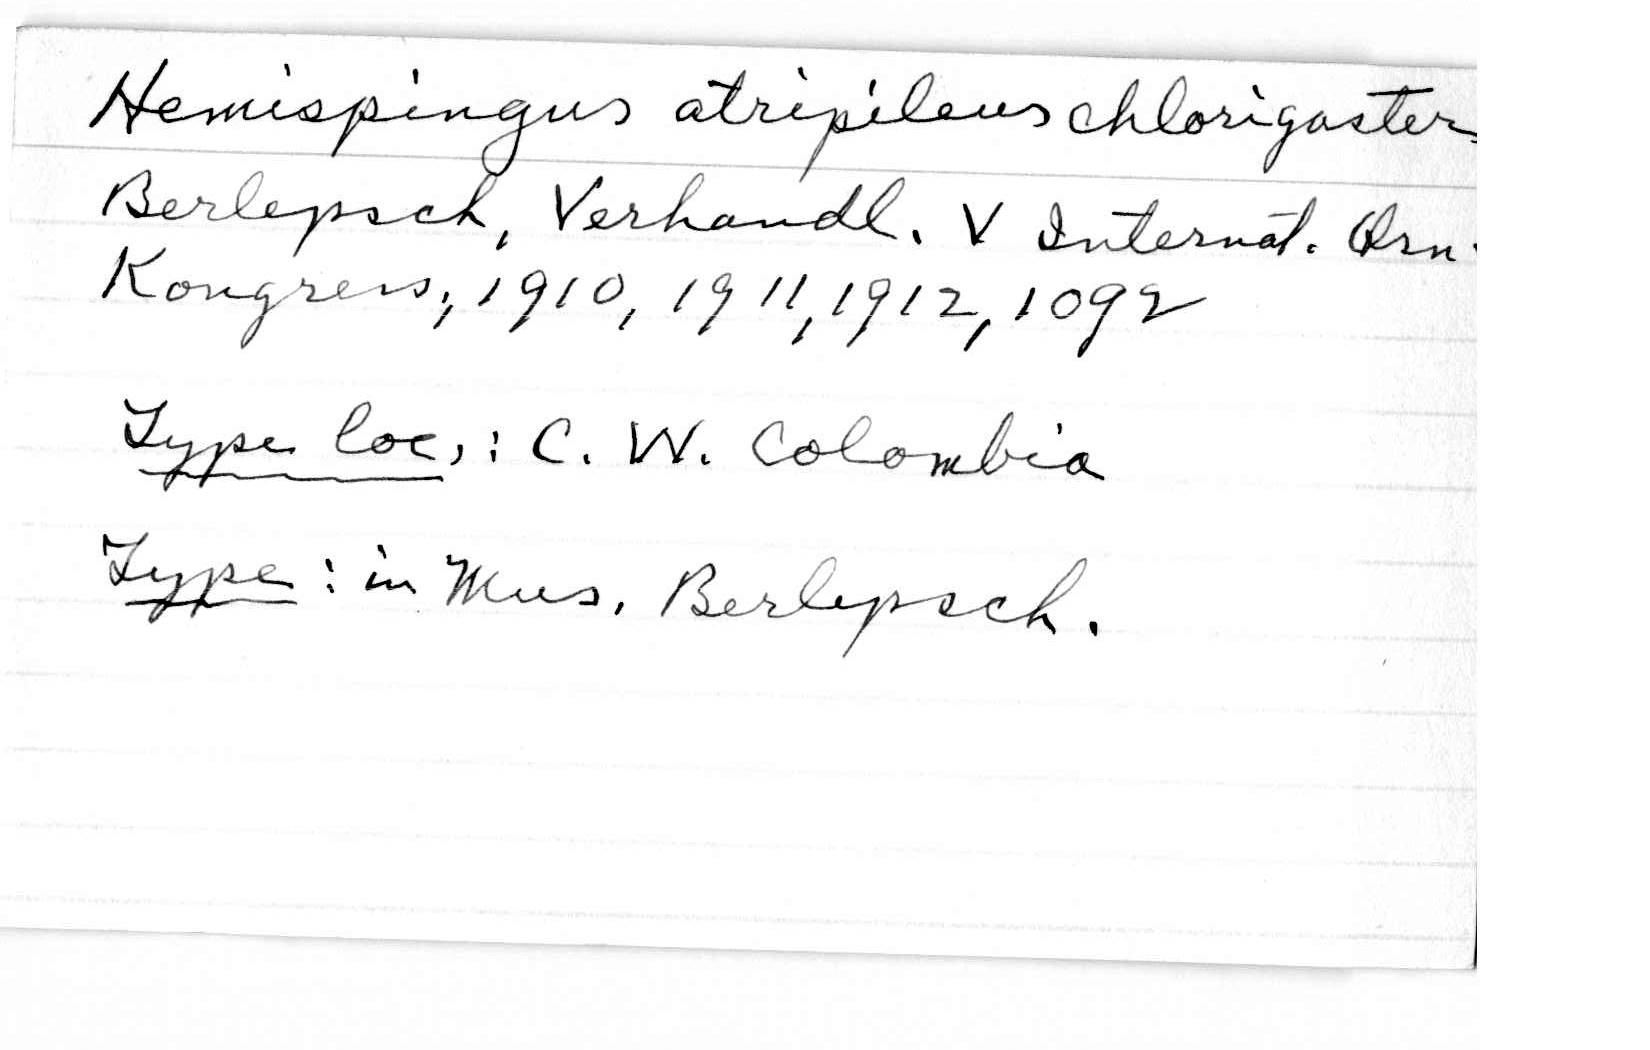 Hemispingus atripileus chlorigaster
Berlepsch, Verhandl. V Internat. Orn.
Kongress, 1910, 1911, 1912, 1092
Type loc,: C. W. Colombia
Type: in Mus. Berlepsch.